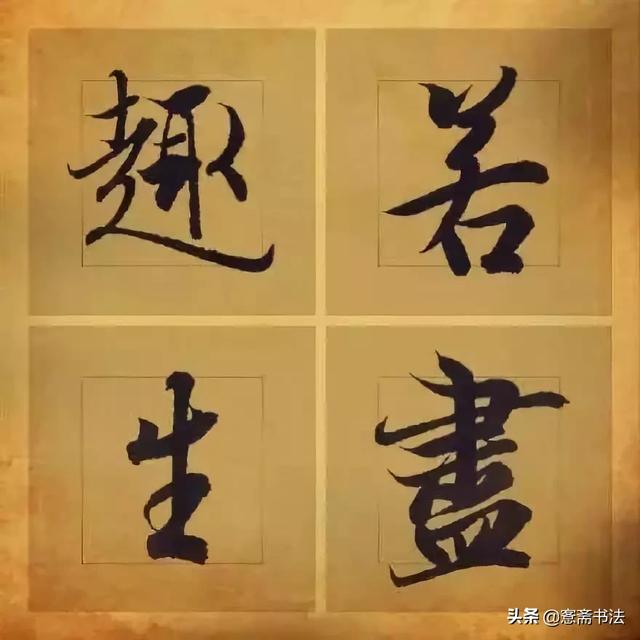 若盡
趣生
头条 @愙斋书法